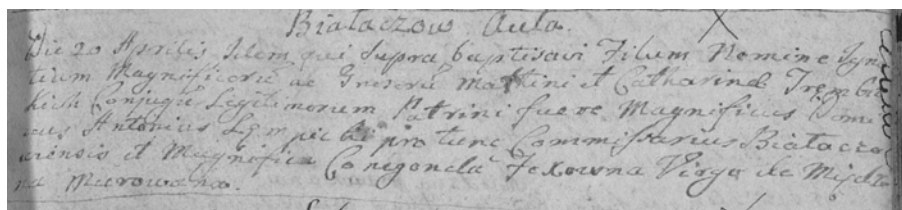 Białaczow Aula.
Die 20 Aprilis Idem qui Supra baptisavi Filium Nomine Igna
tium Magnificorũ ac Gnrosorũ Martini et Catharinae Trembic
kich Conjugũ Legitimorum Patrini fuere Magnificus Domi
nus Antonius protunc Commissarius Białaczo
wiensis et Magnifica Conegonda Virgo de
na Murowana.